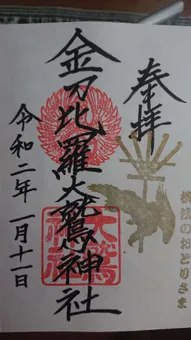 奉拝
横濱のおとりさま
金刀比羅大鷲神社
令和二年一月十一日